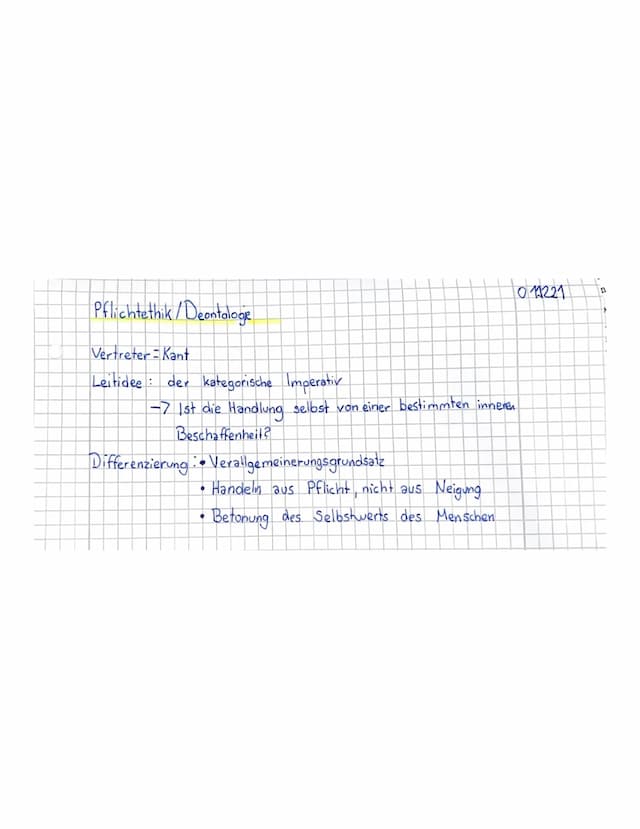 011221
Pflichtethik/Deontologe
Vertreter = Kant
Leitidee : der kategorische Imperativ
→ Ist die Handlung selbst von einer bestimmten inneren
Beschaffenheit?
Differenzierung : • Verallgemeinerungsgrundsatz
• Handeln aus Pflicht, nicht aus Neigung
• Betonung des Selbstwerts des Menschen